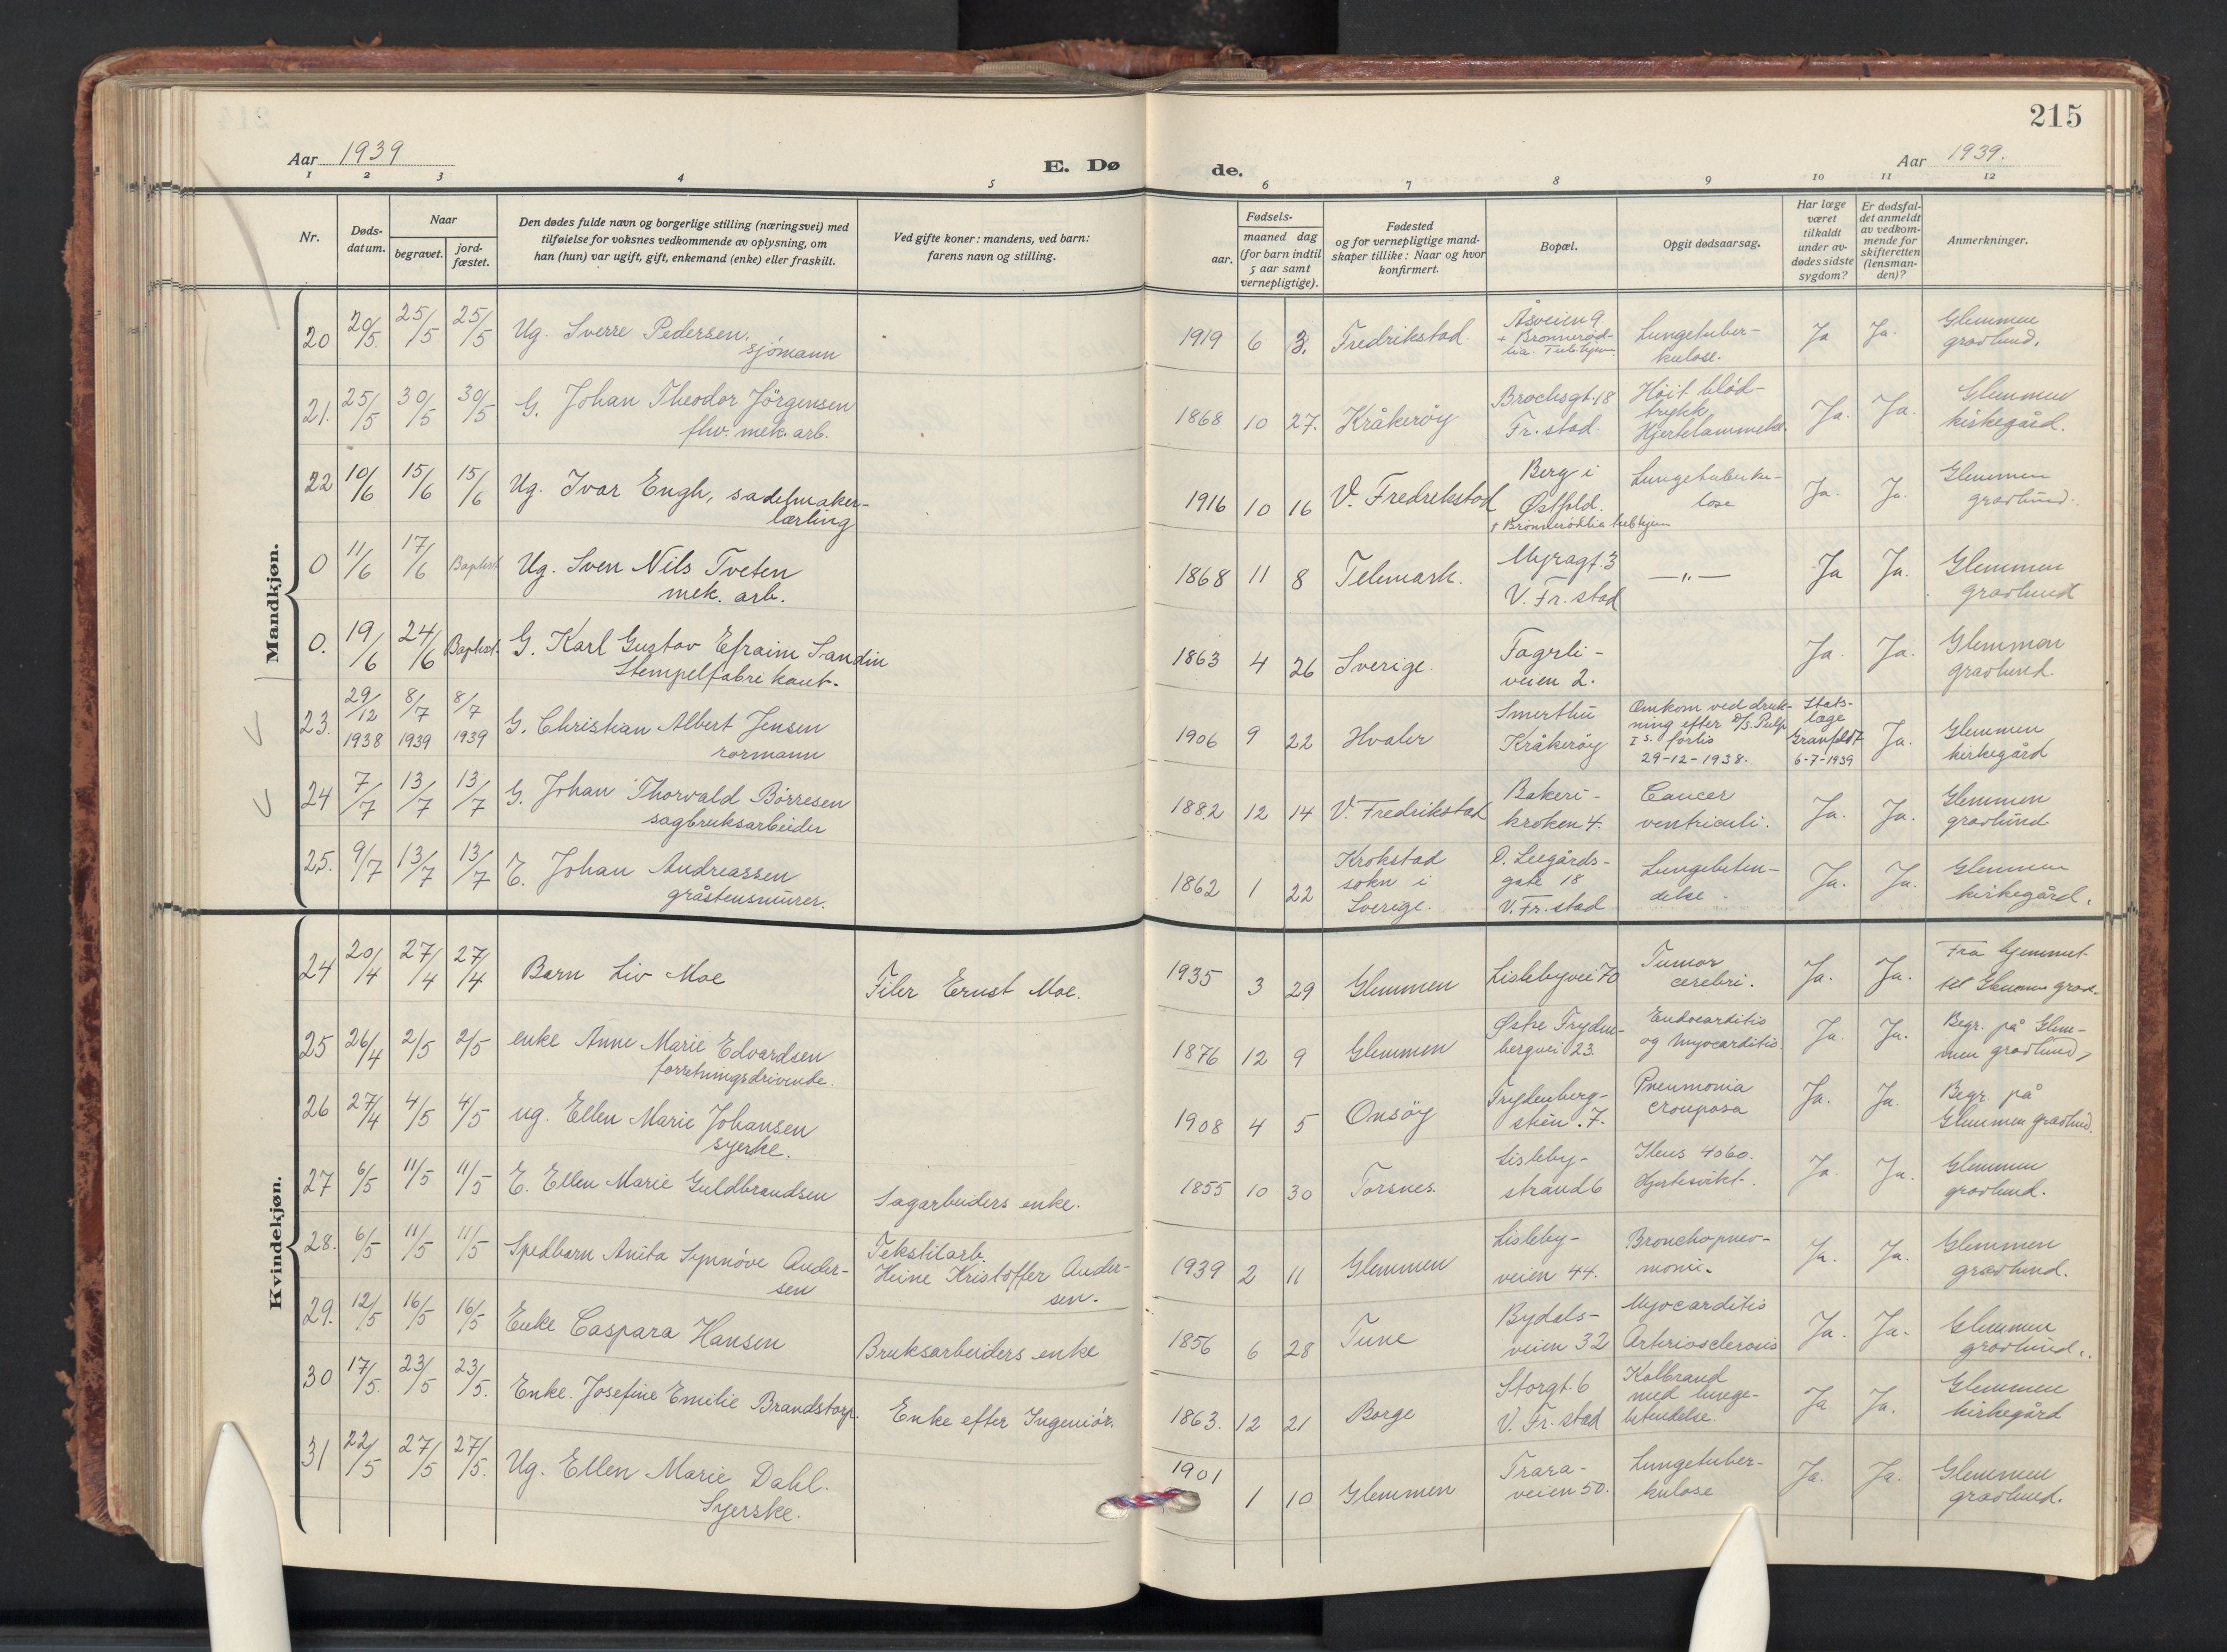 215
Aar 1939
E. Dø
de.
Aar 1939.
1 2 3 4 5 6 7 8 9 10 11 12
Nr.
Døds-
datum.
Naar
begravet.
jord-
fæstet.
Den dødes fulde navn og borgerlige stilling (næringsvei) med
tilføielse for voksnes vedkommende av oplysning, om
han (hun) var ugift, gift, enkemand (enke) eller fraskilt.
Ved gifte koner: mandens, ved barn:
farens navn og stilling.
Fødsels-
aar.
maaned dag
(for barn indtil
5 aar samt
vernepligtige).
Fødested
og for vernepligtige mand-
skaper tillike: Naar og hvor
konfirmert.
Bopæl.
Opgit dødsaarsag.
Har læge
været
tilkaldt
under av-
dødes sidste
sygdom?
Er dødsfal-
det anmeldt
av vedkom-
mende for
skifteretten
(lensman-
den)?
Anmerkninger.
Mandkjøn.
20 20/5. 25/5 25/5 Ug. Sverre Pedersen.
sjömann
1919 6 3. Fredrikstad.
Åsveien 9
+ Brønnerød-
lia. Tub.hjem.
Lungetuber-
kulose.
Ja Ja.
Glemmen
gravlund.
21. 25/5 30/5 30/5 G. Johan Theodor Jörgensen
fhv. mek. arb.
1868 10 27. Kråkeröy
Brochsgt. 18
Fr. stad.
Höit blod-
trykk
Hjertelammelse.
Ja. Ja.
Glemmen
kirkegård.
22 10/6 15/6 15/6 Ug. Ivar Engh, sadelmaker-
lærling
1916 10 16 V. Fredrikstad
Berg i
Østfold.
+ Brønnerödlia tub.hjem
Lungetuberku-
lose
Ja. Ja.
Glemmen
gravlund.
0 11/6 17/6 Baptist Ug. Sven Nils Tveten
mek. arb.
1868 11 8 Telemark.
Myragt. 3
V. Fr. stad
— „ —
Ja Ja.
Glemmen
gravlund
0. 19/6 24/6 Baptist. G. Karl Gustav Efraim Sandin
Stempelfabrikant.
1863 4 26 Sverige.
Fagerli-
veien 2.
Ja. Ja.
Glemmen
gravlund.
23. 29/12 1938 8/7 1939 8/7 1939 G. Christian Albert Jensen
rormann
1906 9 22 Hvaler
Smerthu
Kråkeröy
Omkom ved druk-
ning efter D/S. Pulp
I s. forlis
29-12-1938.
Stats-
læge
6-7-1939
Ja.
Glemmen
kirkegård
24 7/7 13/7 13/7 G. Johan Thorvald Börresen
sagbruksarbeider
1882 12 14 V. Fredrikstad
Bakeri-
kroken 4.
Cancer
ventriculi.
Ja. Ja.
Glemmen
gravlund
25. 9/7 13/7 13/7 E. Johan Andreassen
gråstensmurer.
1862 1 22
Krokstad
sokn i
Sverige.
O. Leegårds-
gate 18
V. Fr. stad
Lungebeten-
delse.
Ja. Ja.
Glemmen
kirkegård.
Kvindekjøn.
24 20/4 27/4 27/4 Barn Liv Moe
Filer Ernst Moe.
1935 3 29 Glemmen
Lislebyvei 70
Tumor
cerebri.
Ja. Ja.
Fra hjemmet
til Glemmen grav.
25 26/4 2/5 2/5 enke Anne Marie Edvardsen
forretningsdrivende.
1876 12 9 Glemmen
Østre Fryden-
bergvei 23.
Endocarditis
og Myocarditis.
Ja. Ja.
Begr. på Glem-
men gravlund,
26 27/4 4/5 4/5 ug. Ellen Marie Johansen
syerke.
1908 4 5 Onsöy
Frydenberg-
stien. 7.
Pneumonia
crouposa
Ja. Ja.
Begr. på
Glemmen gravlund.
27 6/5 11/5 11/5 E. Ellen Marie Guldbrandsen
Sagarbeiders enke.
1855 10 30 Torsnes.
Lisleby-
strand 6
Ileus 4060.
Hjertesvikt.
Ja. Ja.
Glemmen
gravlund.
28. 6/5 11/5 11/5 Spedbarn Anita Synnöve Ander-
sen
Tekstilarb.
Heine Kristoffer Ander-
sen.
1939 2 11 Glemmen
Lisleby-
veien 44.
Bronchopneu-
moni.
Ja. Ja.
Glemmen
gravlund.
29. 12/5 16/5 16/5 Enke Caspara Hansen
Bruksarbeiders enke
1856 6 28 Tune
Bydals-
veien 32
Myocarditis
Arteriosclerosis
Ja. Ja.
Glemmen
gravlund.
30 17/5. 23/5 23/5. Enke. Josefine Emilie Brandstorp.
Enke efter Ingeniör.
1863. 12 21 Borge
Storgt. 6
V. Fr. stad
Kolbrand
med lunge-
betendelse.
Ja Ja.
Glemmen
kirkegård
31 22/5 27/5 27/5. Ug. Ellen Marie Dahl.
Syerske.
1901 1 10 Glemmen
Trara-
veien 50.
Lungetuber-
kulose
Ja. Ja.
Glemmen
gravlund.